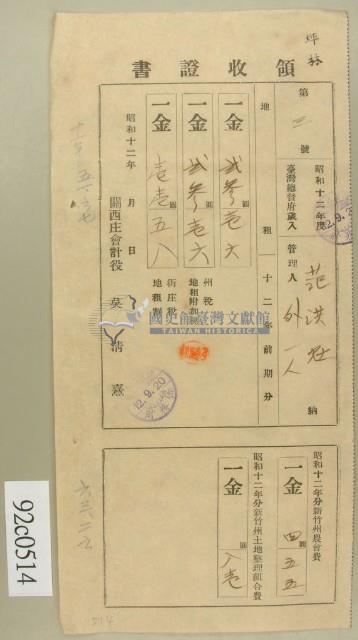 坪林
領收證書
第 三 號
昭和十二年度
臺灣總督府歲入
管理人 范洪 外一人 納
地租 十二年前期分
一金 貳參壱六
一金 貳參壱六 州稅 地租附加稅
一金 壱壱五八 街庄稅 地租割
昭和十二年 月 日
關西庄會計役 吳 清 熹
12.9.20
昭和十二年分新竹州農會費
一金 四五五
昭和十二年分新竹州土地整理組合費
一金 八壱
國史館臺灣文獻館
TAIWAN HISTORICA
92c0514